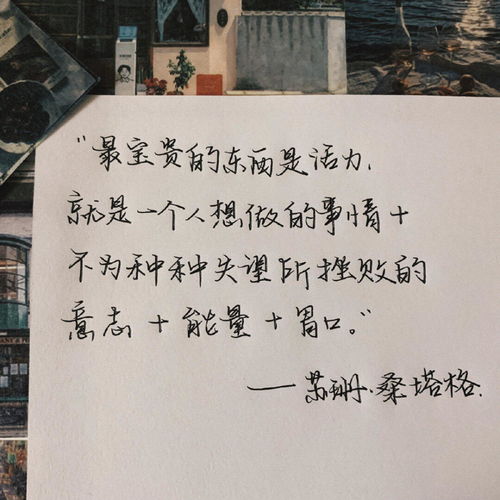 “最宝贵的东西是活力，
就是一个人想做的事情+
不为种种失望所挫败的
意志+能量+胃口。”
——苏珊·桑塔格.